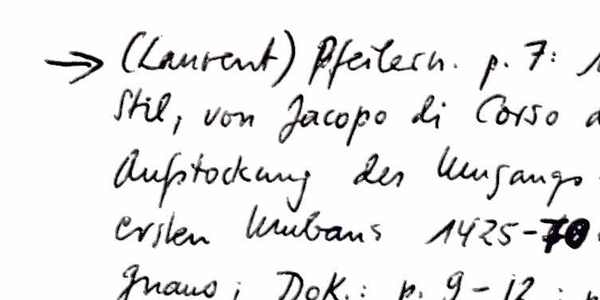 → (Laurent) Pfeilern. p. 7:
Stil, von Jacopo di Corso
Aufstockung des Umgangs
ersten Umbaus 1425-70
Dok.: p. 9-12 ;